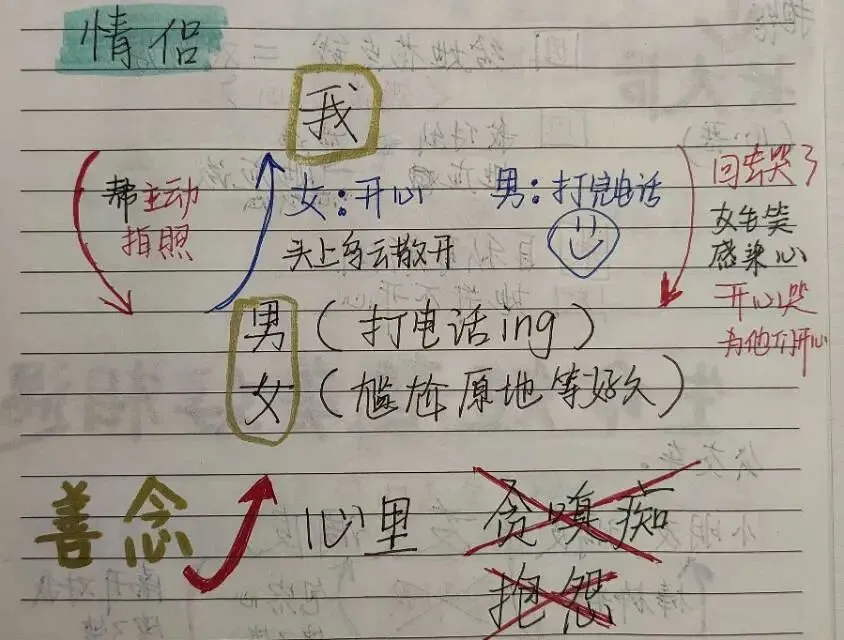 情侣
我
帮主动
拍照
女：开心 男：打完电话
头上乌云散开
回去哭了
女生笑
感染心
开心哭
为他们开心
男（打电话ing）
女（尴尬原地等好久）
善念 心里 贪嗔痴
抱怨